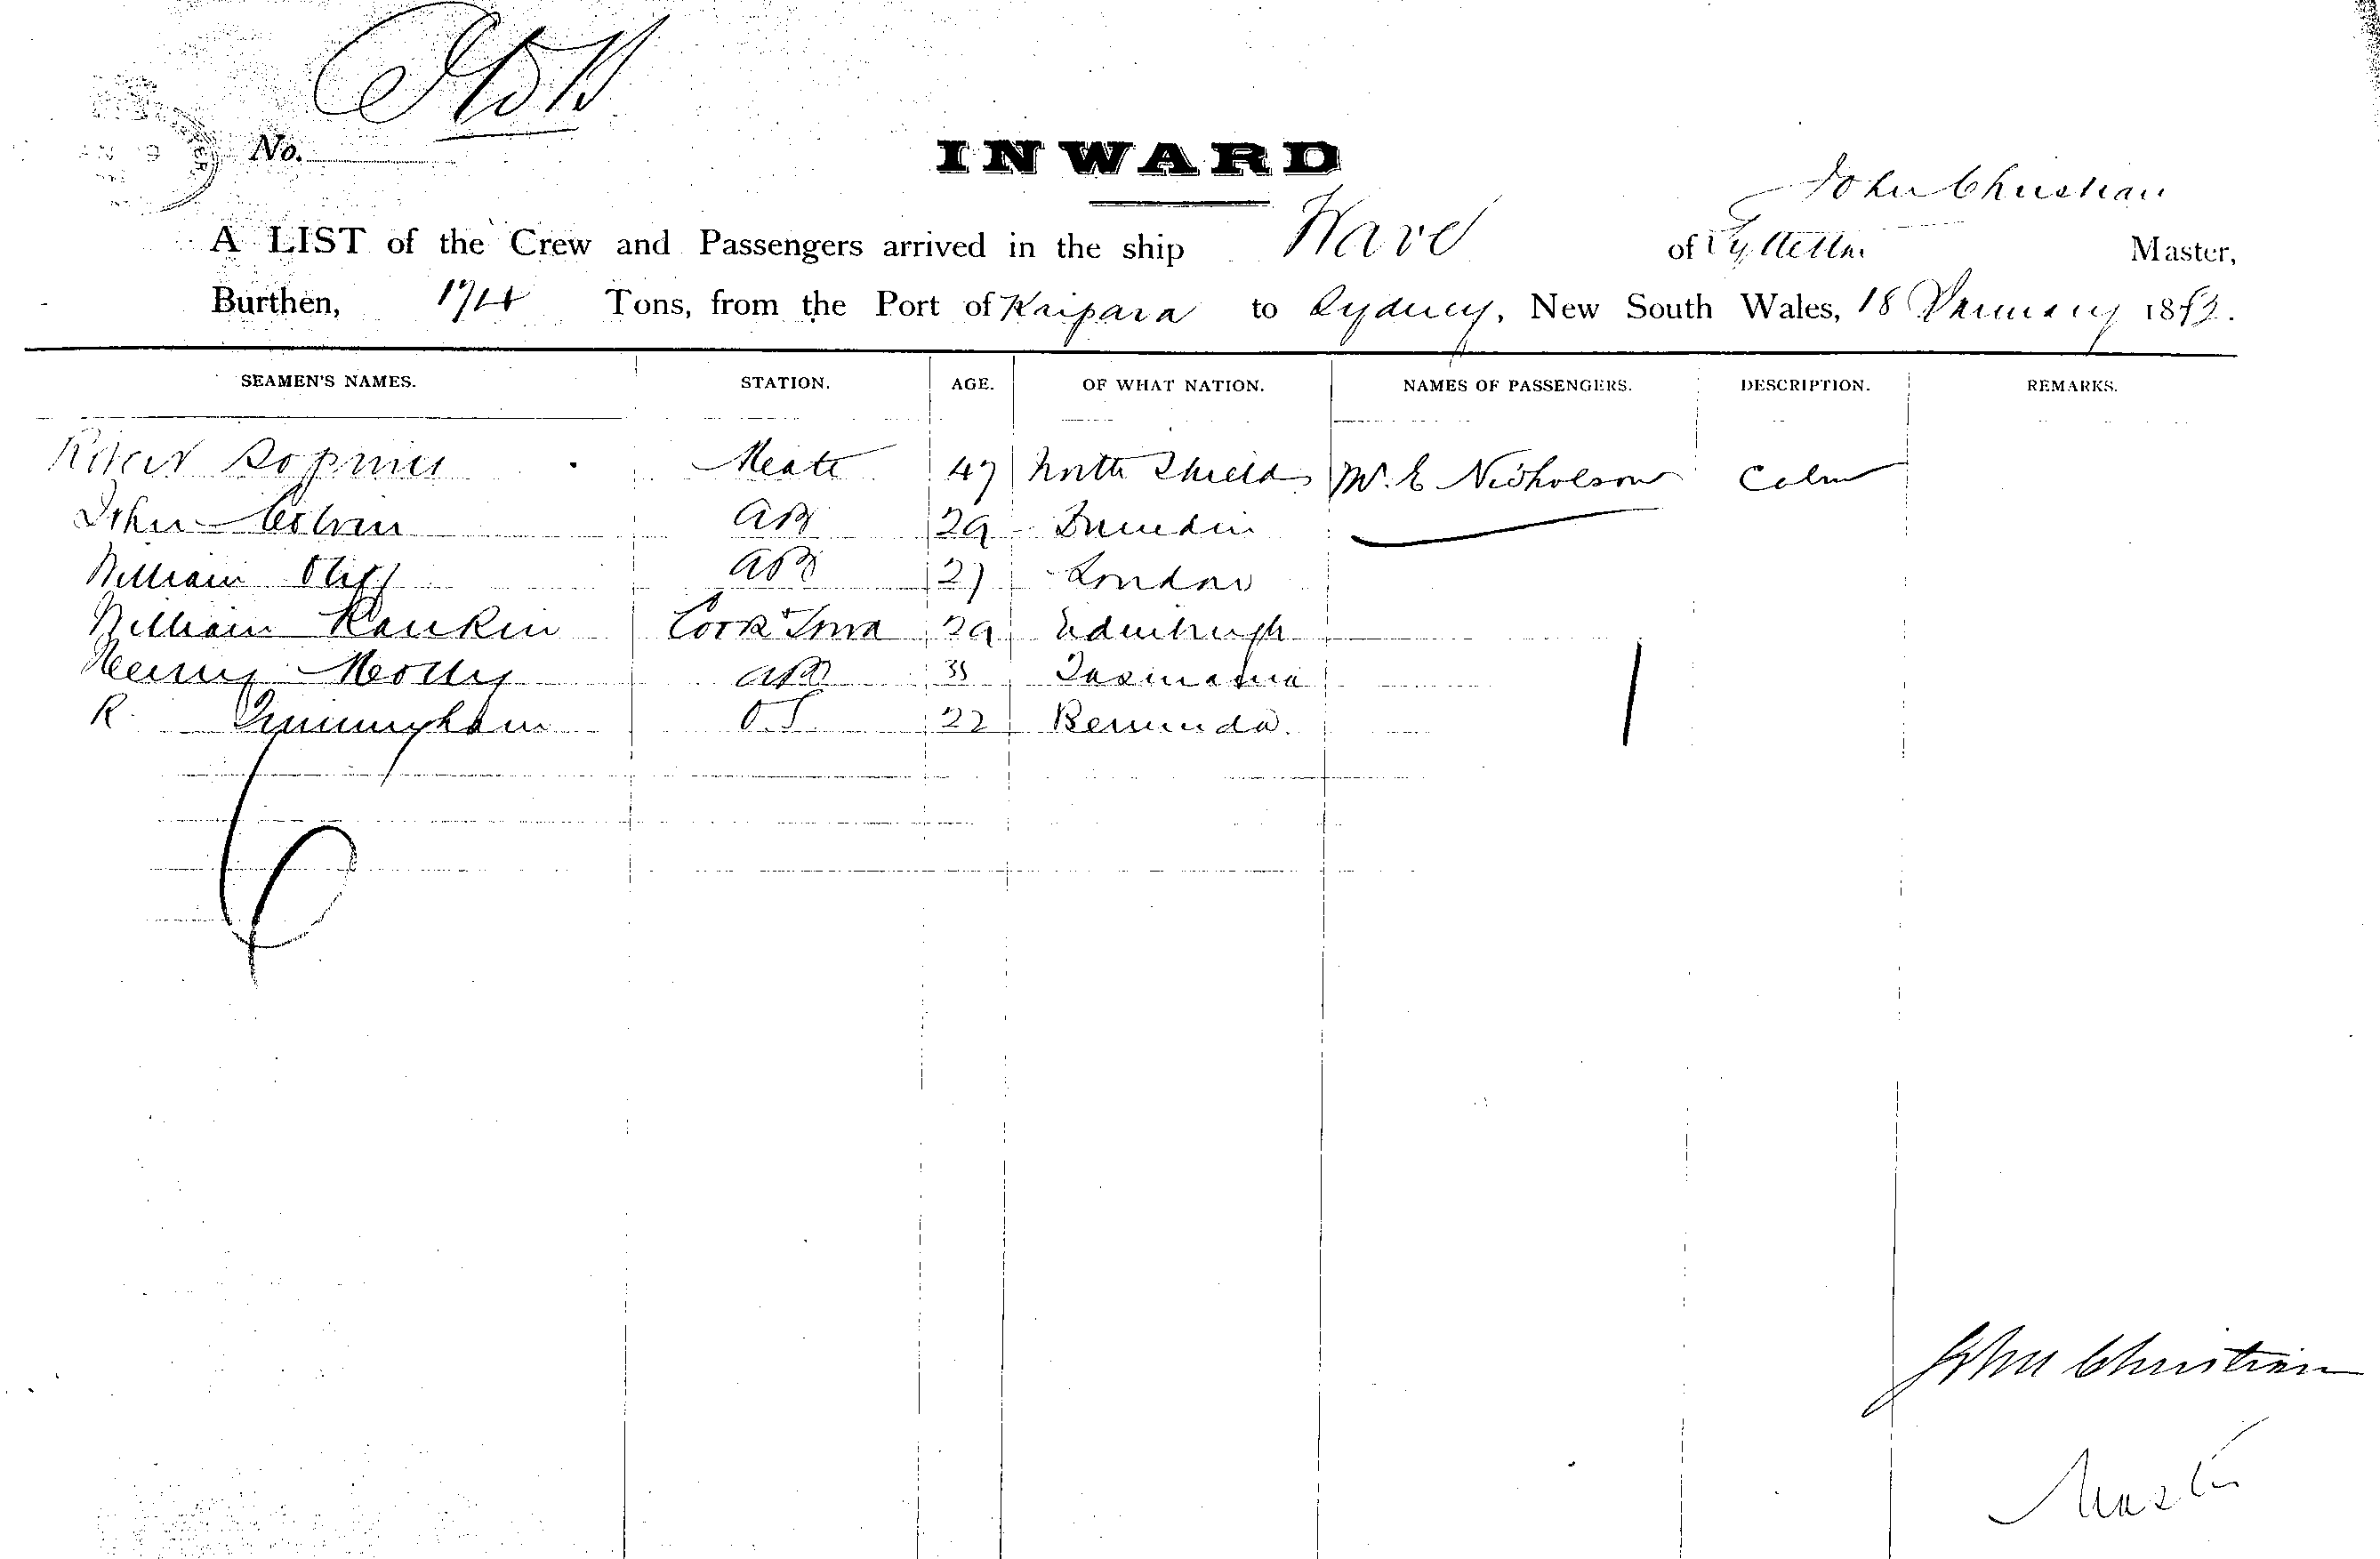 No.
INWARD
John Christian
A LIST of the Crew and Passengers arrived in the ship Wave of Lyttelton Master,
Burthen, 174 Tons, from the Port of Kaipara to Sydney, New South Wales, 18 January 18
SEAMEN'S NAMES. STATION. AGE. OF WHAT NATION. NAMES OF PASSENGERS. DESCRIPTION. REMARKS.
Mate 47 North Shields W. E Nicholson Cabin
John AB 29 Dunedin
William AB 27 London
William Rankin Cook & Stwd 29 Edinburgh
Henry AB 35 Tasmania
R. O.S. 22 Bermuda
6
1
John Christian
Master